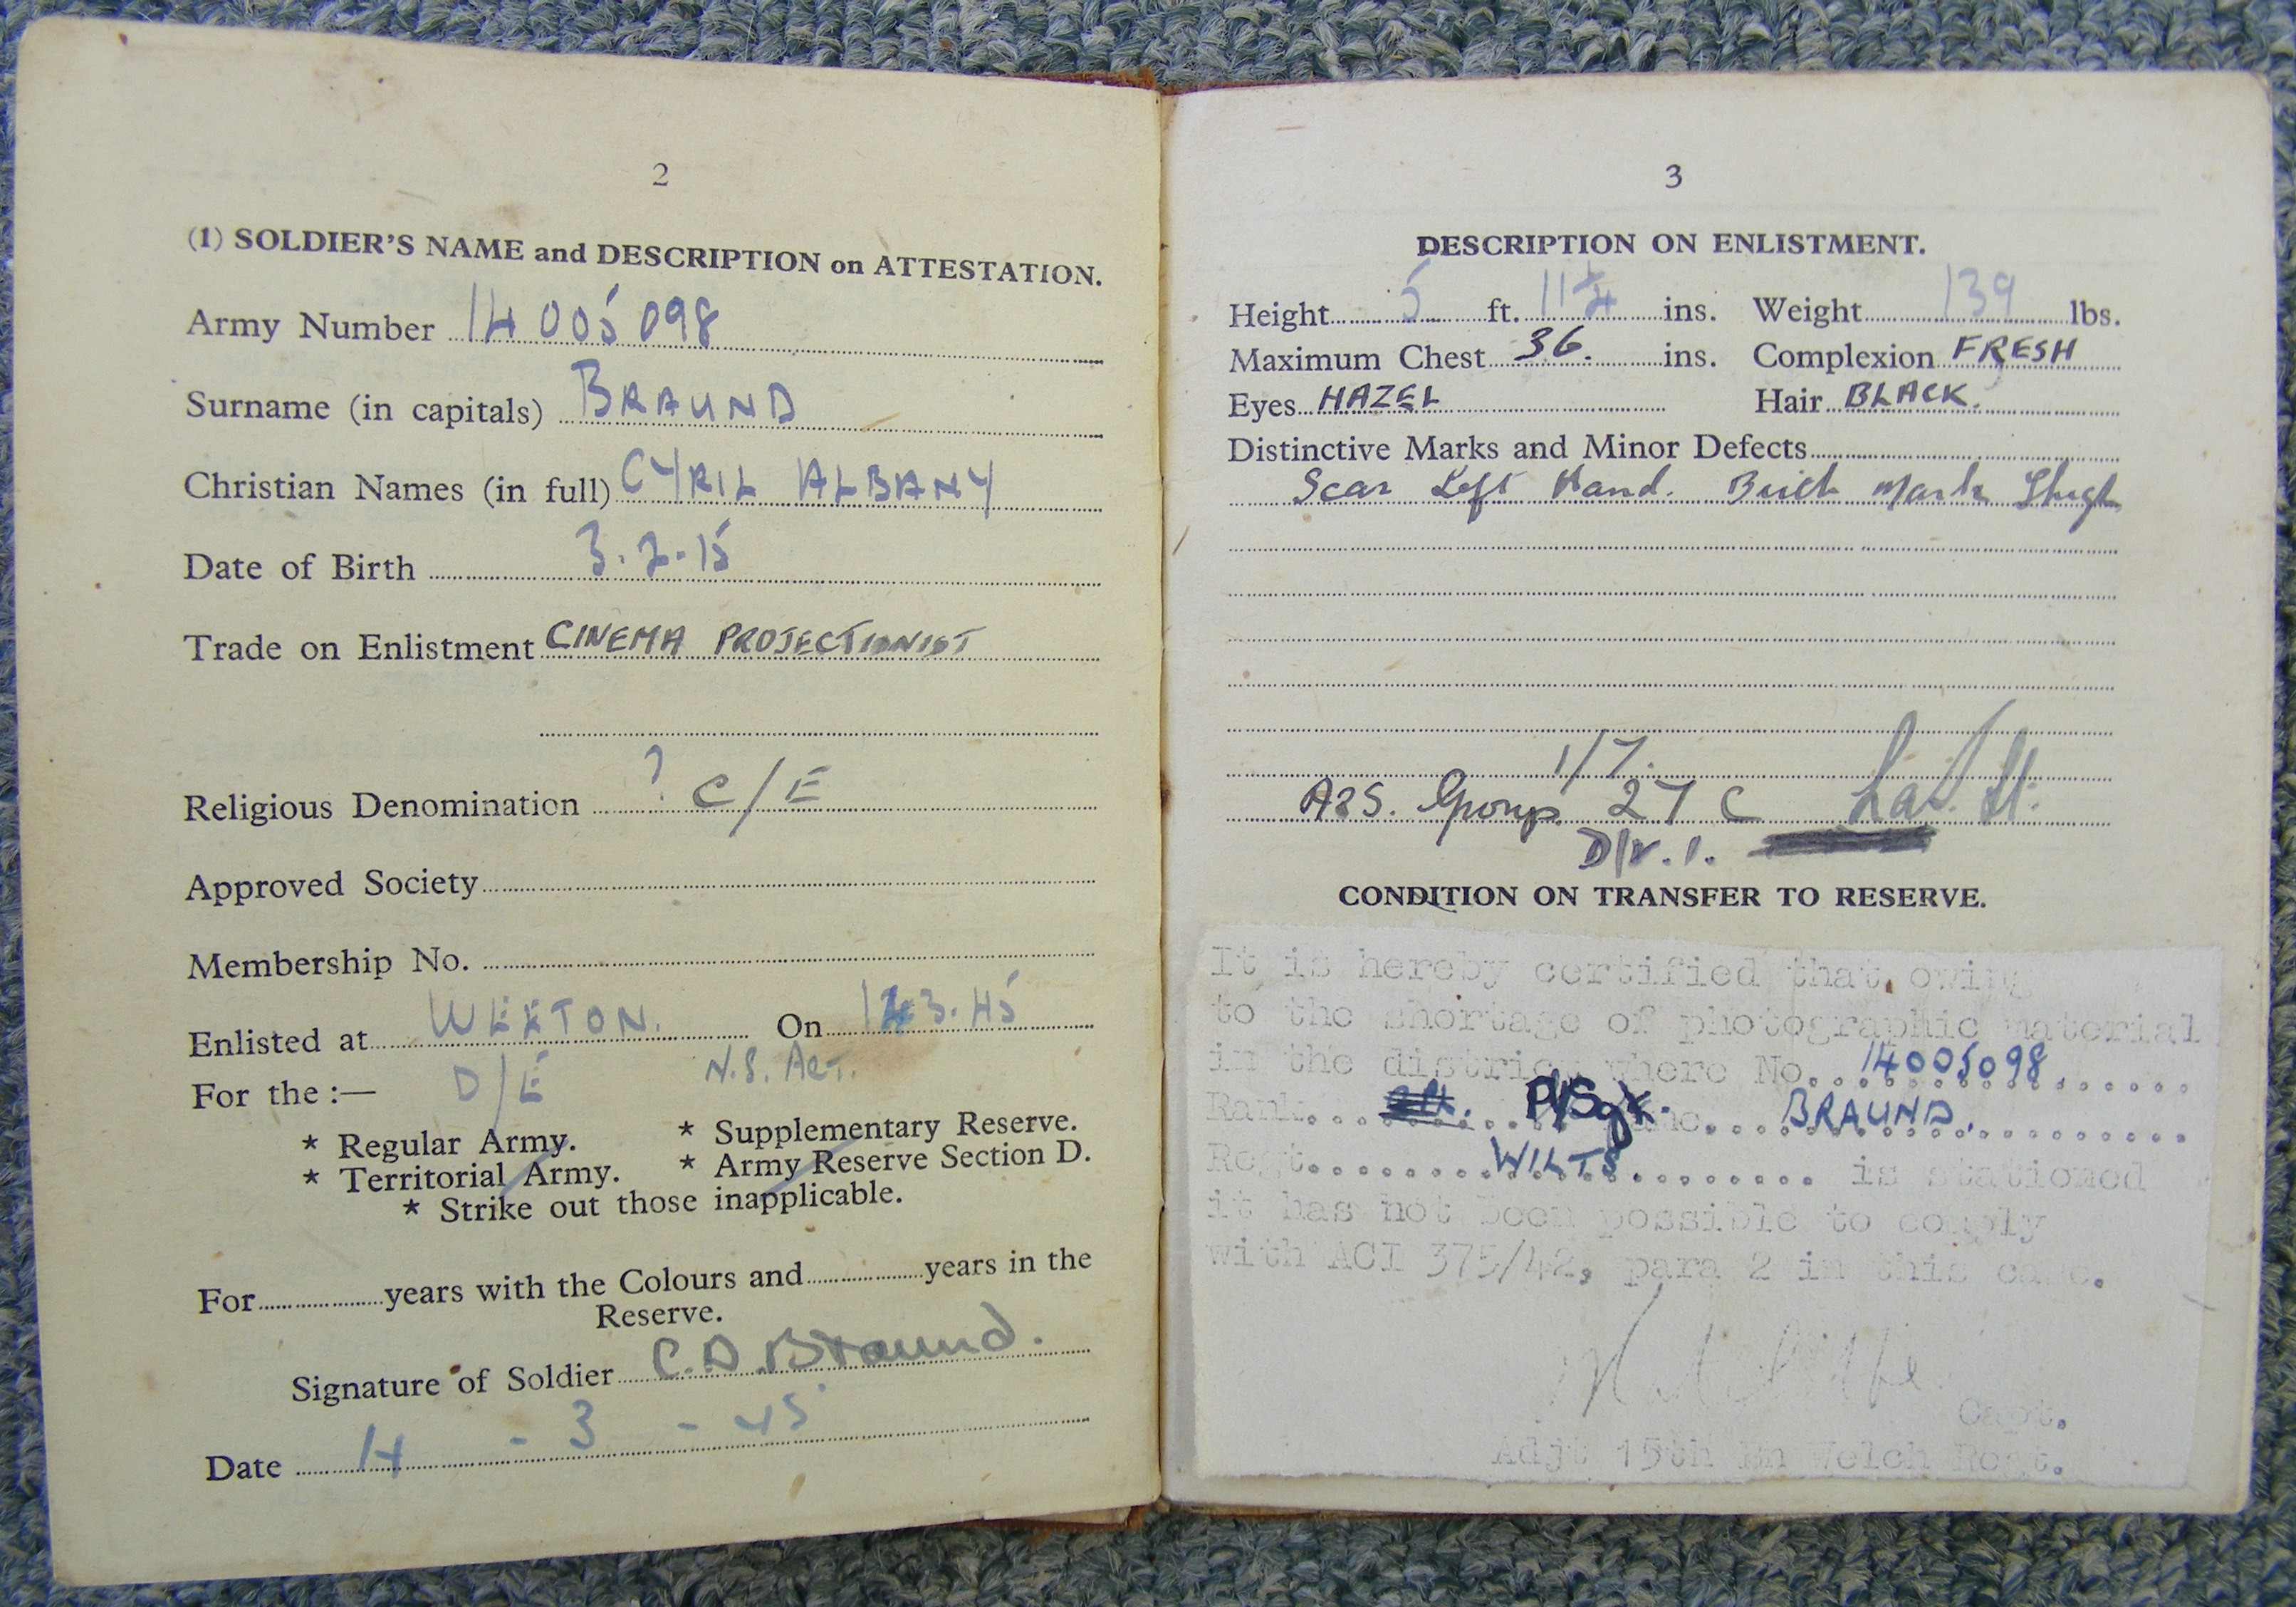 2
(1) SOLDIER'S NAME and DESCRIPTION on ATTESTATION.
Army Number 14005098
Surname (in capitals) BRAUND
Christian Names (in full) CYRIL ALBANY
Date of Birth 3.2.15
Trade on Enlistment CINEMA PROJECTIONIST
Religious Denomination ? C/E
Approved Society
Membership No.
Enlisted at WEETON. On 3.45
For the :— D/E N.S. ACT.
* Regular Army. * Supplementary Reserve.
* Territorial Army. * Army Reserve Section D.
* Strike out those inapplicable.
For years with the Colours and years in the
Reserve.
Signature of Soldier Braund.
Date 14 - 3 - 45
3
DESCRIPTION ON ENLISTMENT.
Height 5 ft. 11 1/4 ins. Weight 139 lbs.
Maximum Chest 36. ins. Complexion FRESH
Eyes HAZEL Hair BLACK.
Distinctive Marks and Minor Defects
Scar Left Hand. Mark
1/7.
A&S. Group. 27 C
CONDITION ON TRANSFER TO RESERVE.
It is hereby certified that owing
to the shortage of photographic material
in the district where No. 14005098
Rank P/Sgt. BRAUND.
Regt. WILTS is stationed
it has not been possible to comply
with ACI 375/42, para 2 in this case.
Capt.
Adjt 15th Bn Welch Regt.